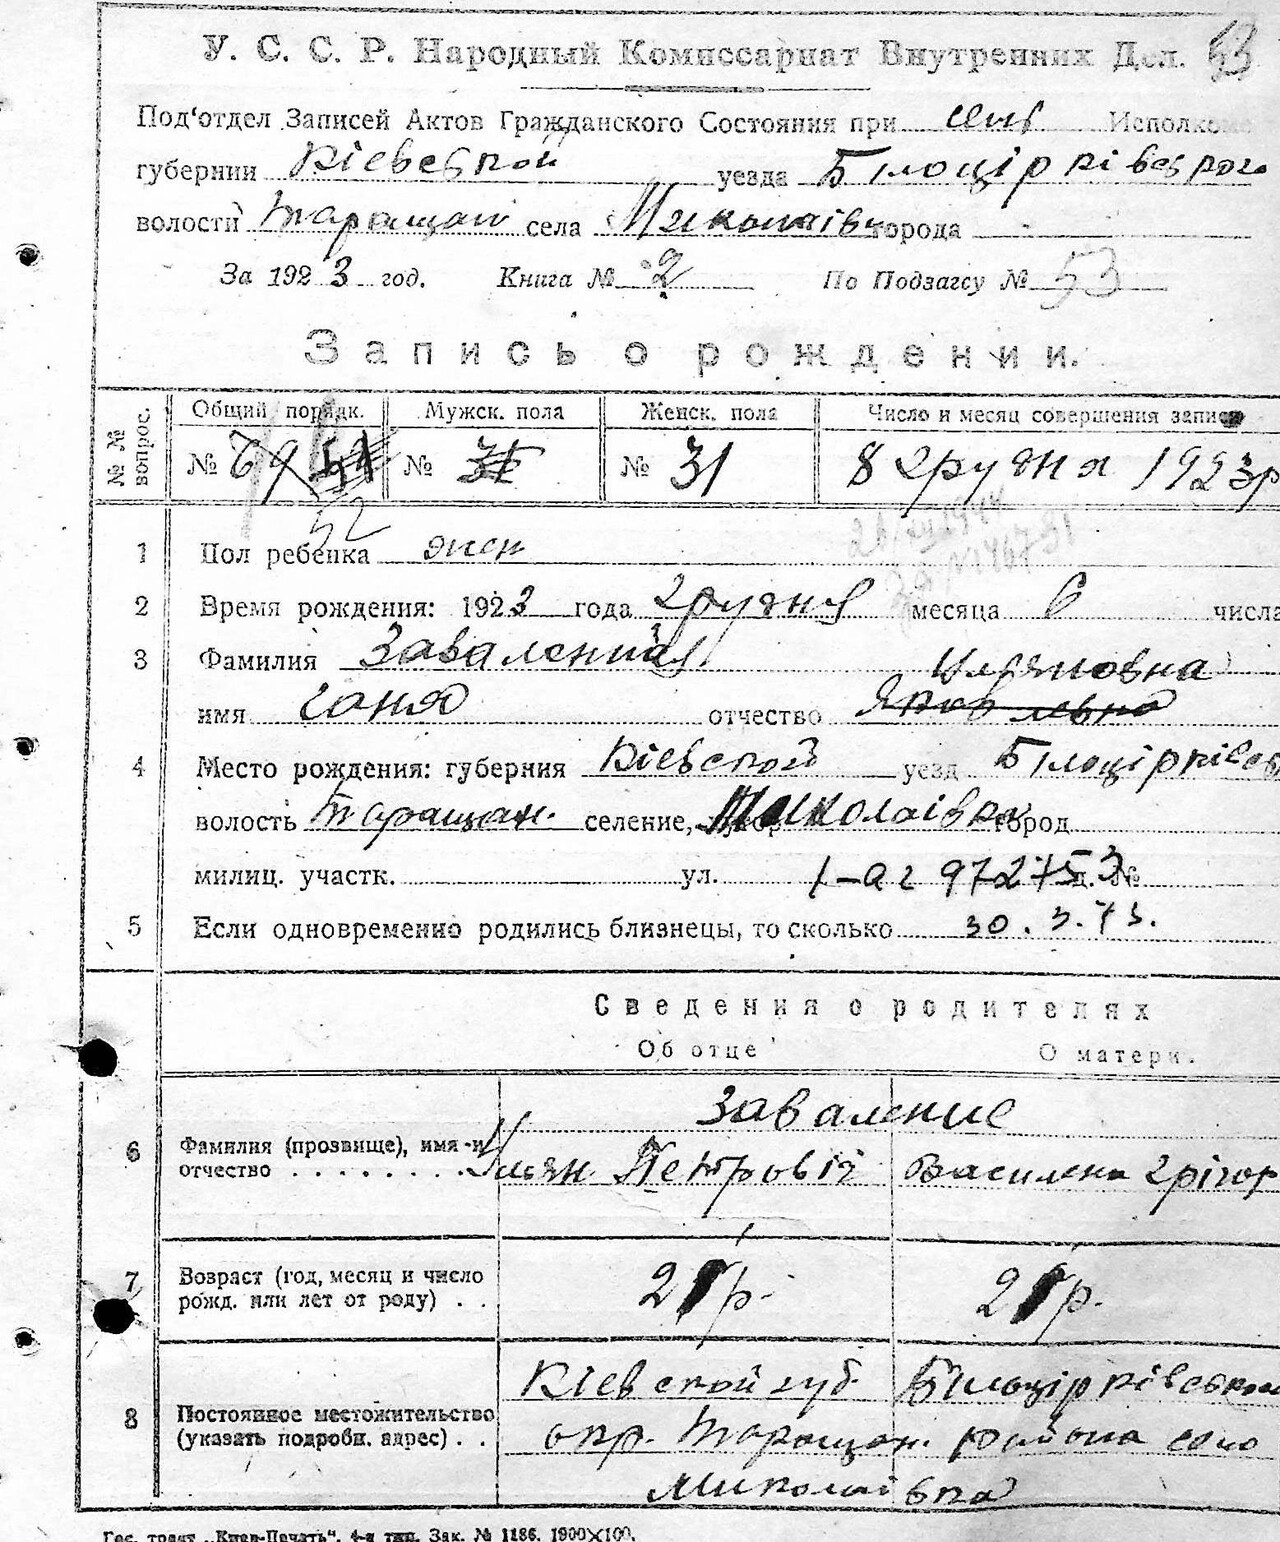 У. С. С. Р. Народный Комиссариат Внутренних Дел. 53
Под'отдел Записей Актов Гражданского Состояния при сель Исполком
губернии Кіевской уезда Білоцірківского
волости Таращан села Миколаівк города
За 1923 год. Книга № 2 По Подзагсу № 53
Запись о рождении.
№ № вопрос.
Общий порядк. Мужск. пола Женск. пола Число и месяц совершения записи
№ 69 51 № 31 № 31 8 грудня 1923р
52
1 Пол ребенка жен
2 Время рождения: 1923 года грудня месяца 6 числа
3 Фамилия Заваленная Ульяновна
имя Ганя отчество Яковлевна
4 Место рождения: губерния Кіевской уезд Білоцірківсь
волость Таращан. селение, хутор Миколаівка город
милиц. участк. ул. д. №
1-аг 972753
5 Если одновременно родились близнецы, то сколько 30.3.73.
Сведения о родителях
Об отце О матери.
Заваление
6 Фамилия (прозвище), имя и отчество Ульян Петровіч Василена Грігор
7 Возраст (год, месяц и число рожд. или лет от роду) 21р. 21р.
8 Постоянное местожительство (указать подробн. адрес)
Кіевской губ Білоцірківської
окр. Таращан. района село
Миколаівка
Гос. трест „Киев-Печать“, 4-я тип. Зак. № 1186. 1900×100.